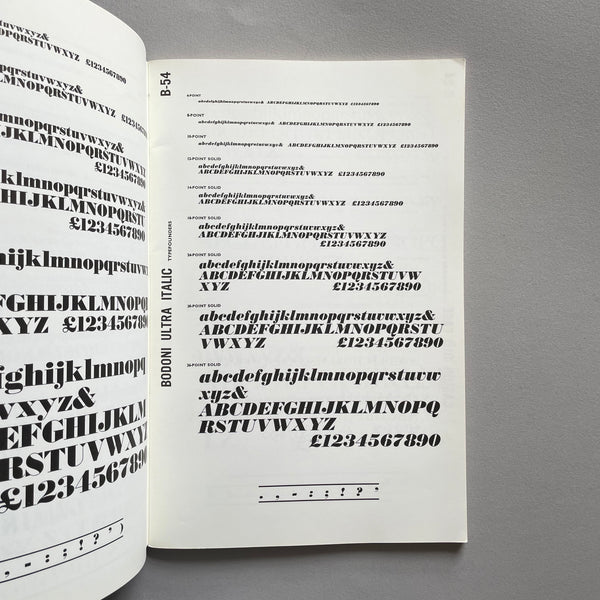 stuvwxyz&
XYZ £1234567890
qrstuvwxyz&
LMNOPQRSTUVWXYZ
£1234567890
pqrstuvwxyz&
KLMNOPQRSTU
£1234567890
klmnopqrstuvw
JKLMNOPQRS
£1234567890
ijklmnopqrst
FGHIJKLMNOP
XYZ £1234567
fghijklmn
vwxyz&
EFGHIJK
RSTUVW
£123456
, - : ; ! ? ’ )
B-54
BODONI ULTRA ITALIC TYPEFOUNDERS
6-POINT
abcdefghijklmnopqrstuvwxyz& ABCDEFGHIJKLMNOPQRSTUVWXYZ £1234567890
8-POINT
abcdefghijklmnopqrstuvwxyz& ABCDEFGHIJKLMNOPQRSTUVWXYZ £1234567890
10-POINT
abcdefghijklmnopqrstuvwxyz& ABCDEFGHIJKLMNOPQRSTUVWXYZ £1234567890
12-POINT SOLID
abcdefghijklmnopqrstuvwxyz&
ABCDEFGHIJKLMNOPQRSTUVWXYZ £1234567890
14-POINT SOLID
abcdefghijklmnopqrstuvwxyz&
ABCDEFGHIJKLMNOPQRSTUVWXYZ £1234567890
18-POINT SOLID
abcdefghijklmnopqrstuvwxyz&
ABCDEFGHIJKLMNOPQRSTUVWXYZ
£1234567890
24-POINT SOLID
abcdefghijklmnopqrstuvwxyz&
ABCDEFGHIJKLMNOPQRSTUVW
XYZ £1234567890
28-POINT SOLID
abcdefghijklmnopqrstuvwxyz&
ABCDEFGHIJKLMNOPQRSTU
VWXYZ £1234567890
36-POINT SOLID
abcdefghijklmnopqrstuvw
xyz&
ABCDEFGHIJKLMNOPQ
RSTUVWXYZ
£1234567890
. , - : ; ! ? ’